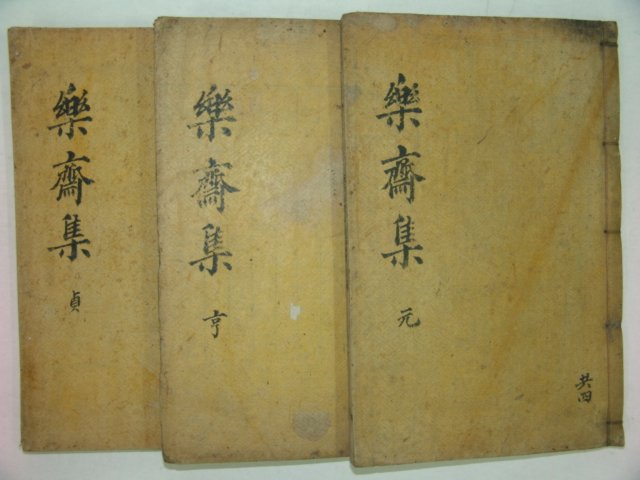 樂齋集
元
共四
樂齋集
亨
樂齋集
貞